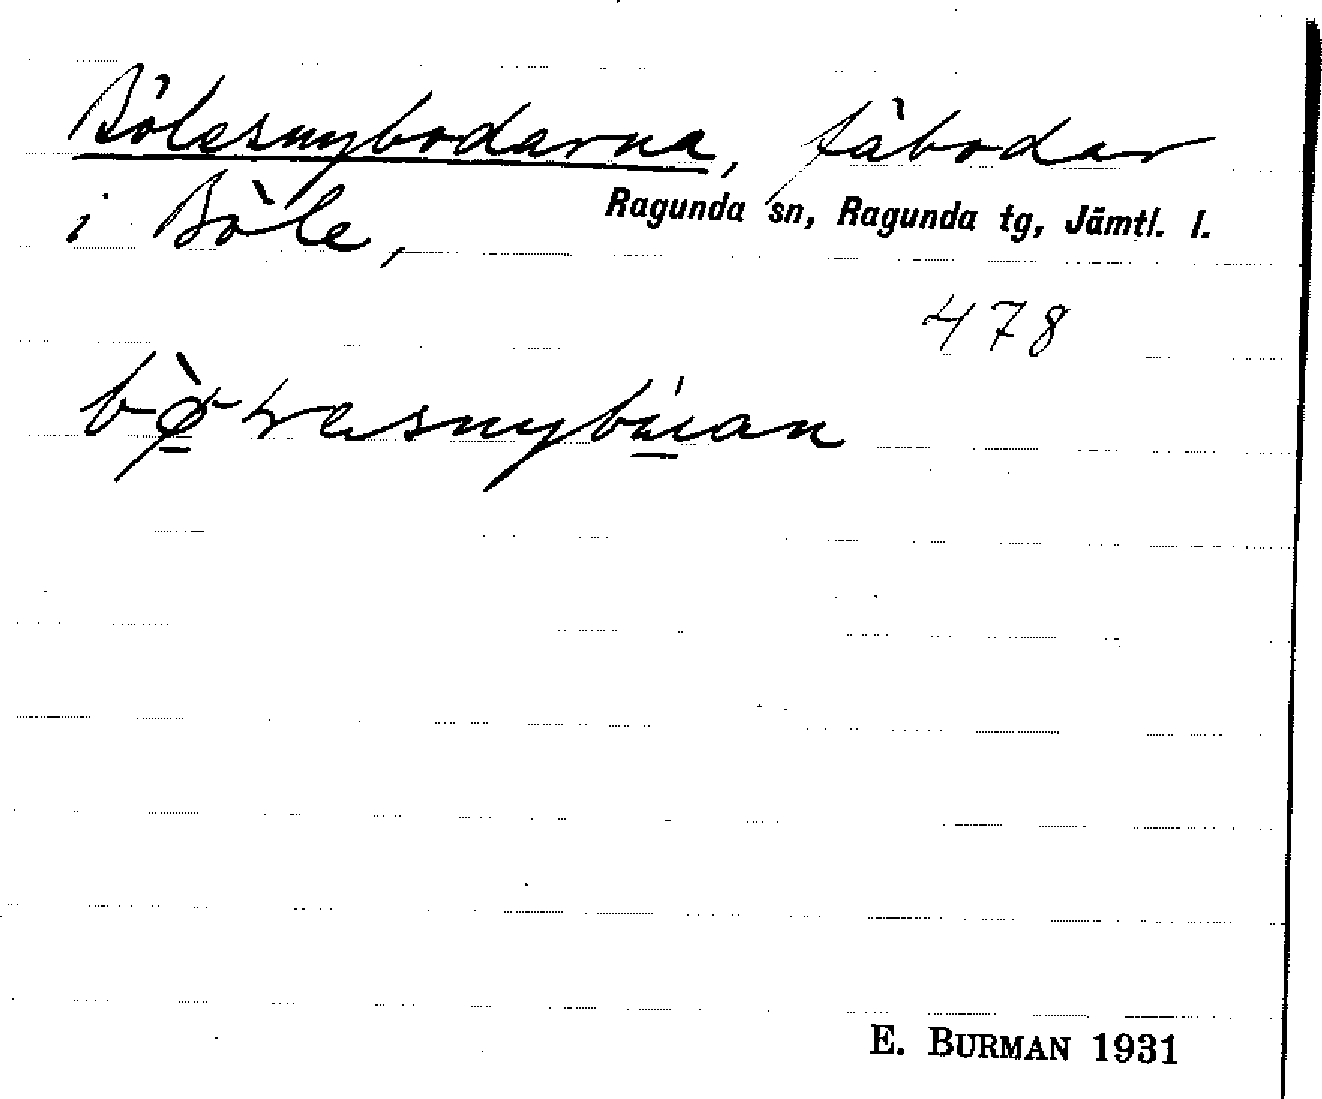 Bölesnybodarna, fäbodar
i Böle, Ragunda sn, Ragunda tg, Jämtl. l.
478
E. BURMAN 1931